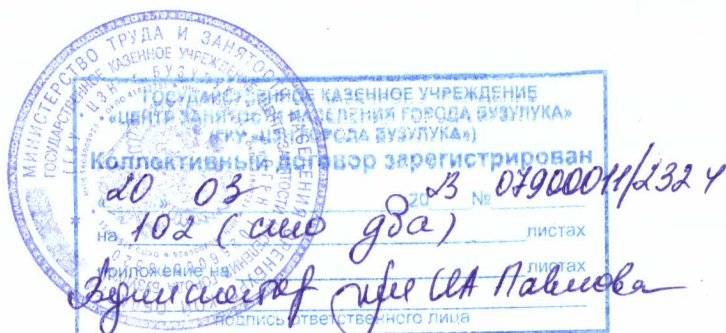 МИНИСТЕРСТВО ТРУДА И ЗАНЯТОСТИ НАСЕЛЕНИЯ ОРЕНБУРГ
ГОСУДАРСТВЕННОЕ КАЗЕННОЕ УЧРЕЖДЕНИЕ
ГОСУДАРСТВЕННОЕ КАЗЕННОЕ УЧРЕЖДЕНИЕ
«ЦЕНТР ЗАНЯТОСТИ НАСЕЛЕНИЯ ГОРОДА БУЗУЛУКА»
(ГКУ «ЦЗН ГОРОДА БУЗУЛУКА»)
Коллективный договор зарегистрирован
«20» 03 2023 № 07900011/232 У
на 102 (сто два) листах
приложение на листах
И.А Павлова
подпись ответственного лица